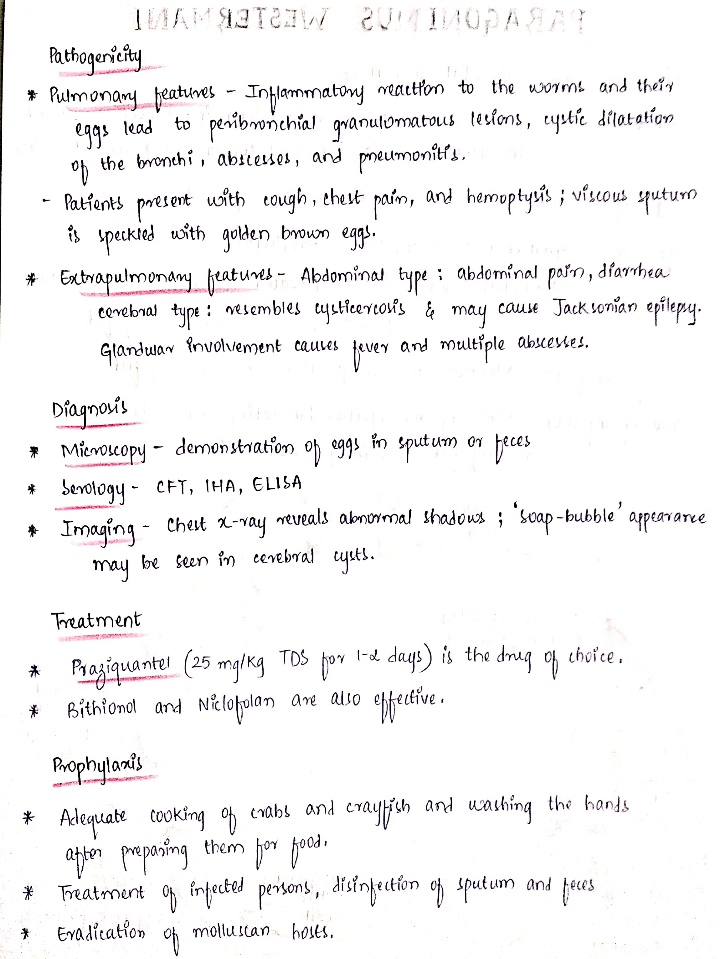 PARAGONIMUS WESTERMANI
Pathogenicity
* Pulmonary features - Inflammatory reaction to the worms and their
eggs lead to peribronchial granulomatous lesions, cystic dilatation
of the bronchi, abscesses, and pneumonitis.
- Patients present with cough, chest pain, and hemoptysis; viscous sputum
is speckled with golden brown eggs.
* Extrapulmonary features - Abdominal type : abdominal pain, diarrhea
cerebral type : resembles cysticercosis & may cause Jacksonian epilepsy.
Glandular involvement causes fever and multiple abscesses.
Diagnosis
* Microscopy - demonstration of eggs in sputum or feces
* Serology - CFT, IHA, ELISA
* Imaging - Chest x-ray reveals abnormal shadows ; 'soap-bubble' appearance
may be seen in cerebral cysts.
Treatment
* Praziquantel (25 mg/Kg TDS for 1-2 days) is the drug of choice.
* Bithionol and Niclofolan are also effective.
Prophylaxis
* Adequate cooking of crabs and crayfish and washing the hands
after preparing them for food.
* Treatment of infected persons, disinfection of sputum and feces
* Eradication of molluscan hosts.